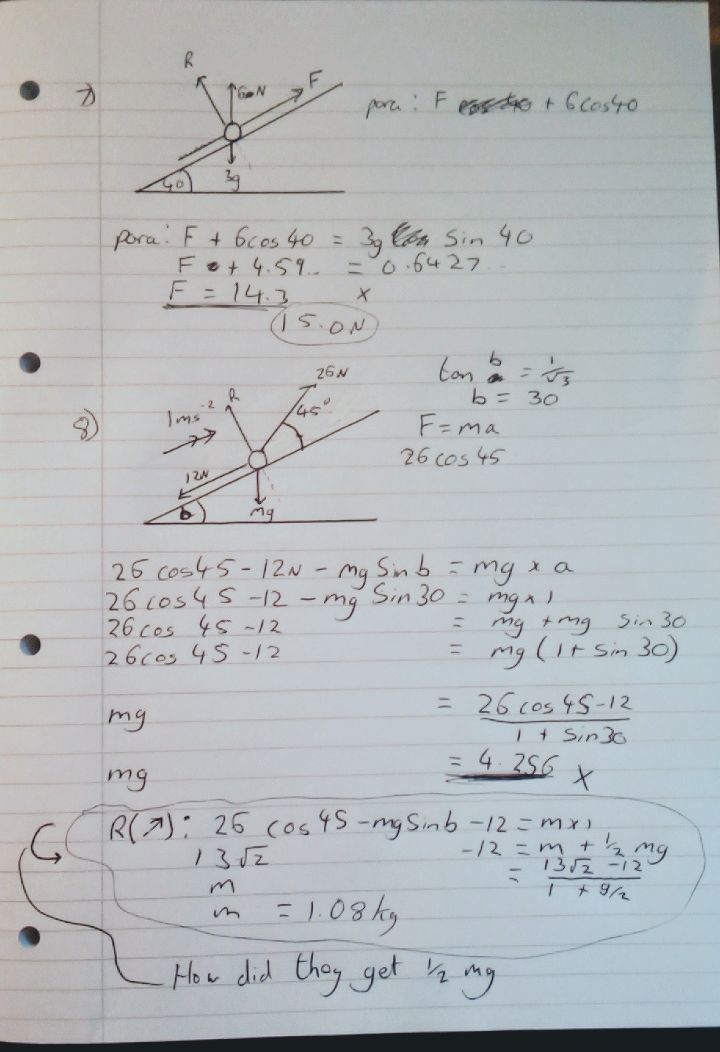 7)
R
6 N
F
3g
40
para: F + 6cos40
para: F + 6cos40 = 3g Sin 40
F + 4.59.. = 0.6427..
F = 14.3 x
15.0N
8)
1ms⁻²
R
26N
45°
12N
b
mg
tan b = 1/√3
b = 30
F = ma
26 cos 45
26 cos45 - 12N - mg Sin b = mg × a
26 cos 45 - 12 - mg Sin30 = mg×1
26cos 45 - 12 = mg + mg Sin30
26cos 45 - 12 = mg (1 + Sin 30)
mg = 26 cos 45-12 / 1 + Sin30
mg = 4.256 x
R(↗): 26 cos45 - mgSinb - 12 = m×1
13√2 - 12 = m + 1/2 mg
m = 13√2 - 12 / 1 + g/2
m = 1.08kg
How did they get 1/2 mg